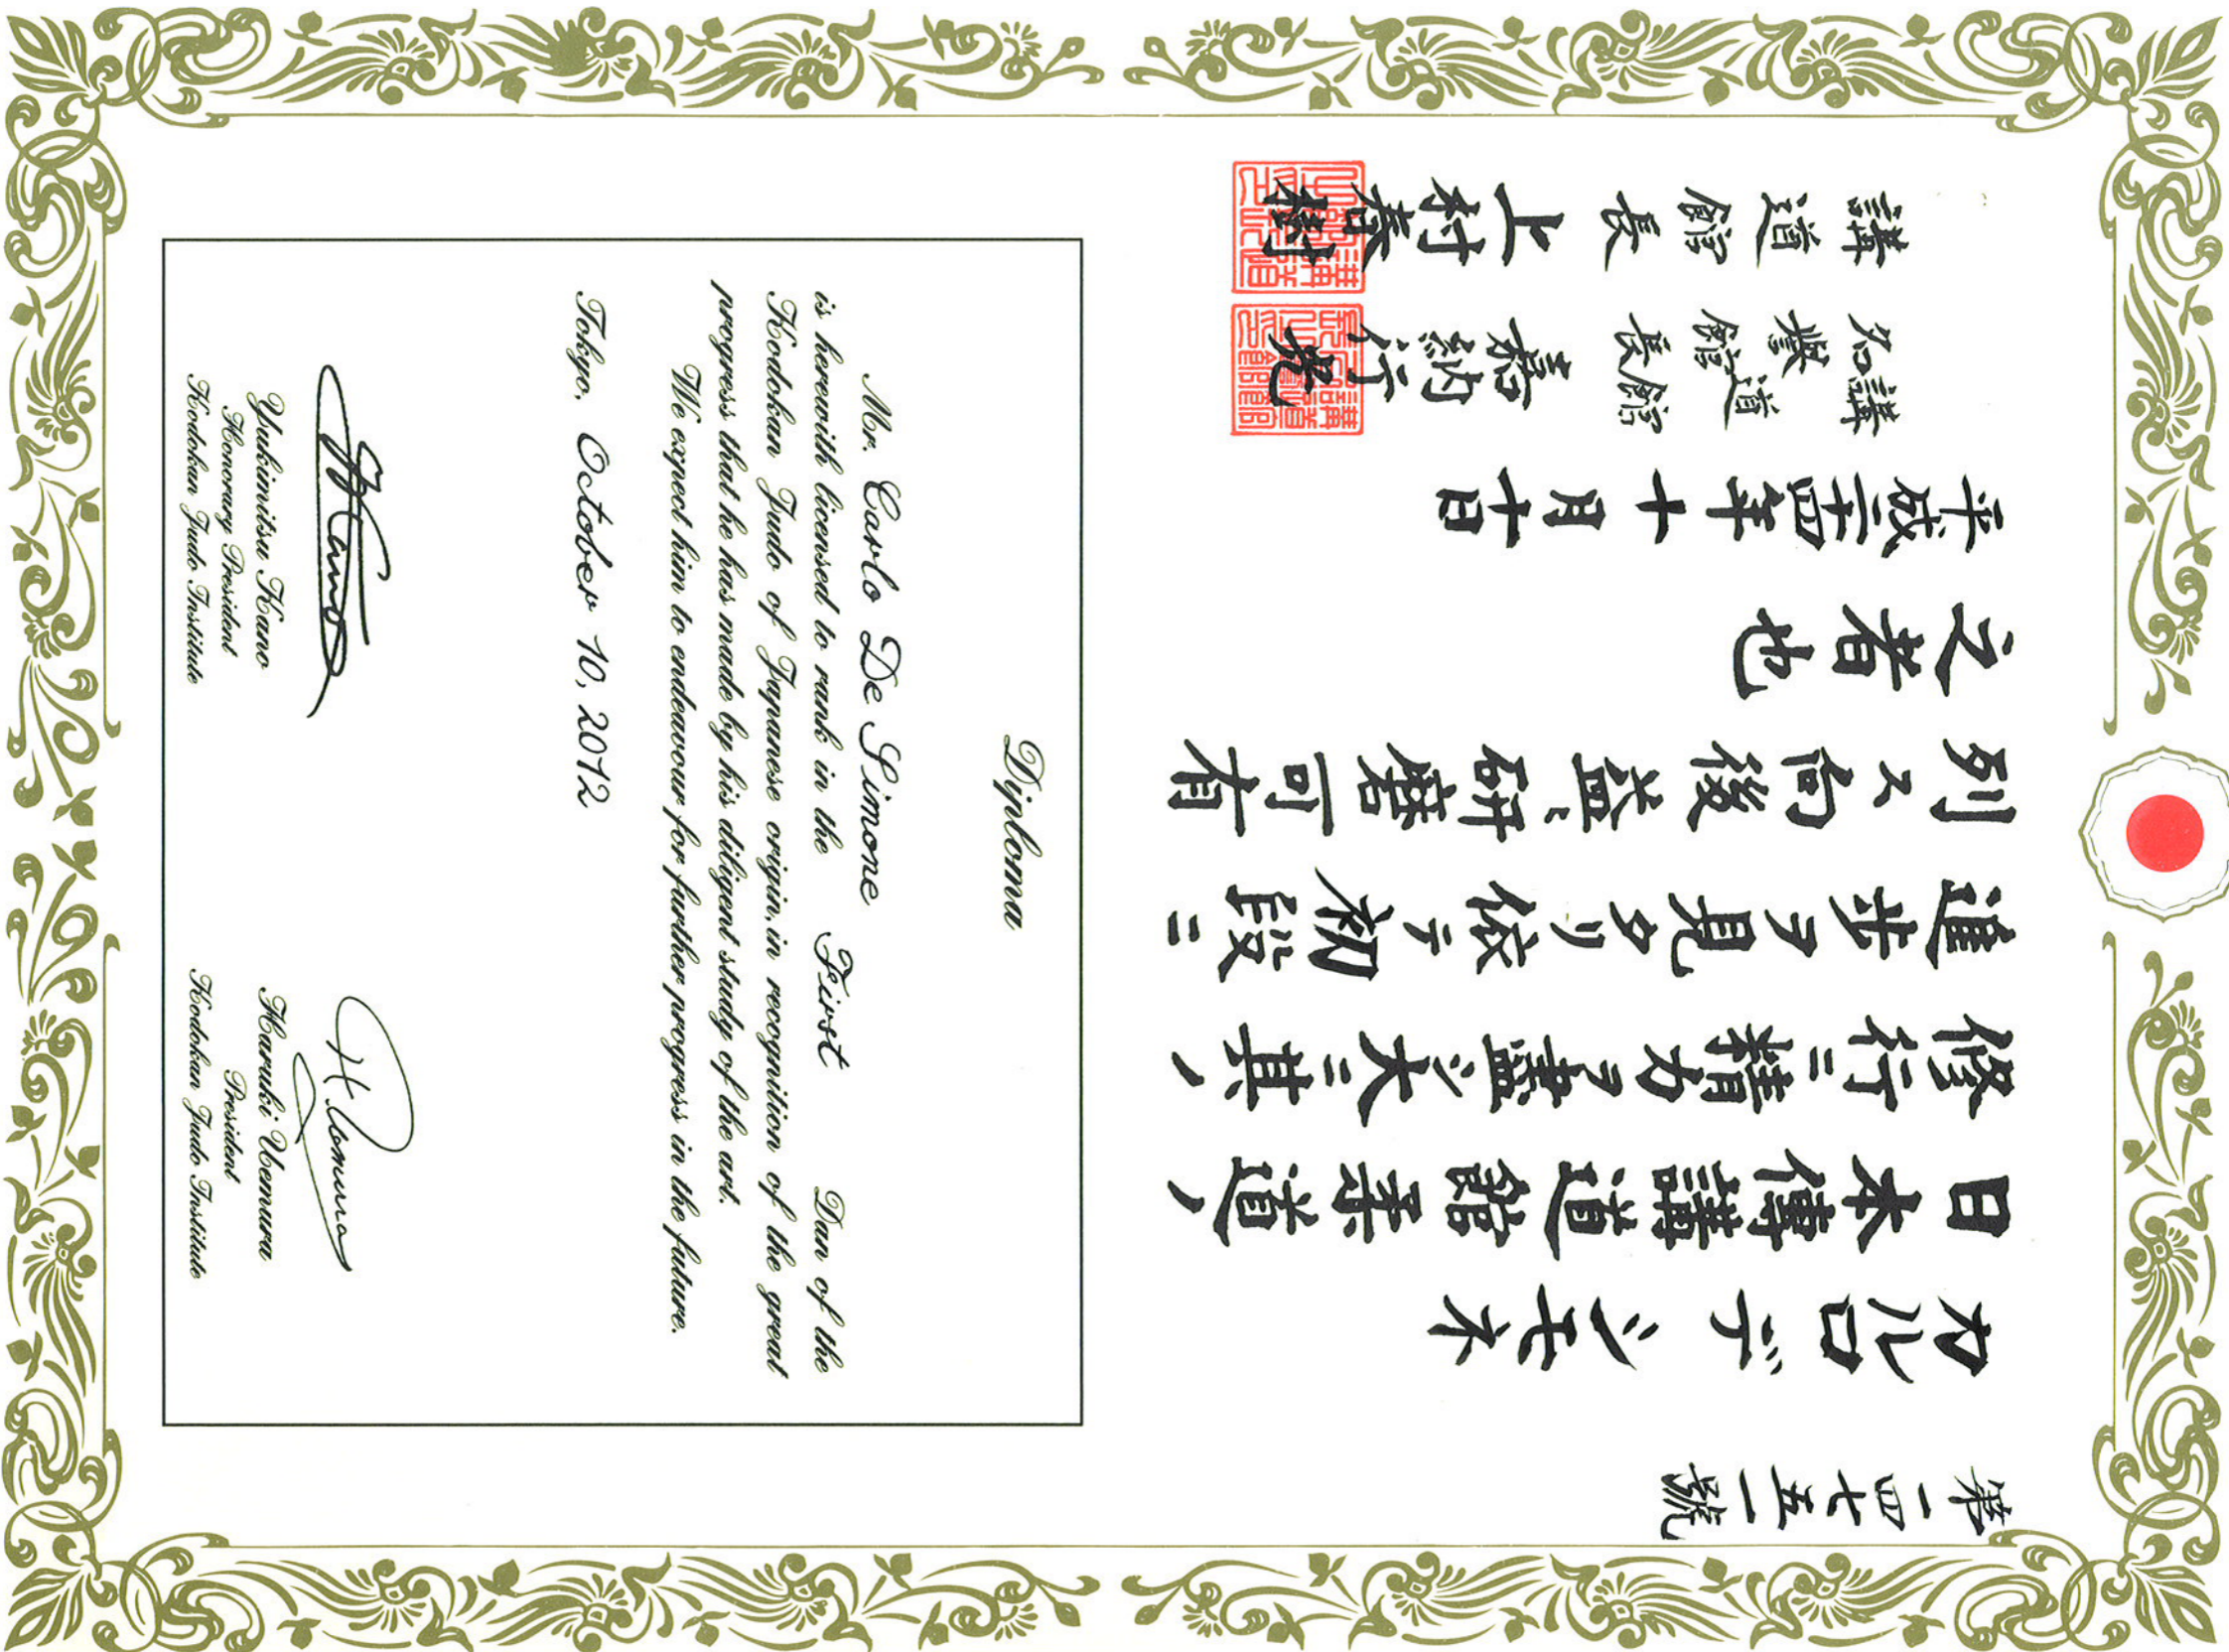 第一四七五一號
カルロ デ シモネ
日本傳講道館柔道ノ
修行ニ精力ヲ盡シ大ニ其ノ
進歩ヲ見タリ依テ初段ニ
列ス向後益〻研磨可有
之者也
平成二四年十月十日
講道館
名譽館長 嘉納行光
講道館長 上村春樹
Diploma
Mr. Carlo De Simone
is herewith licensed to rank in the First Dan of the
Kodokan Judo of Japanese origin, in recognition of the great
progress that he has made by his diligent study of the art.
We expect him to endeavour for further progress in the future.
Tokyo, October 10, 2012
Yukimitsu Kano
Honorary President
Kodokan Judo Institute
H. Uemura
Haruki Uemura
President
Kodokan Judo Institute